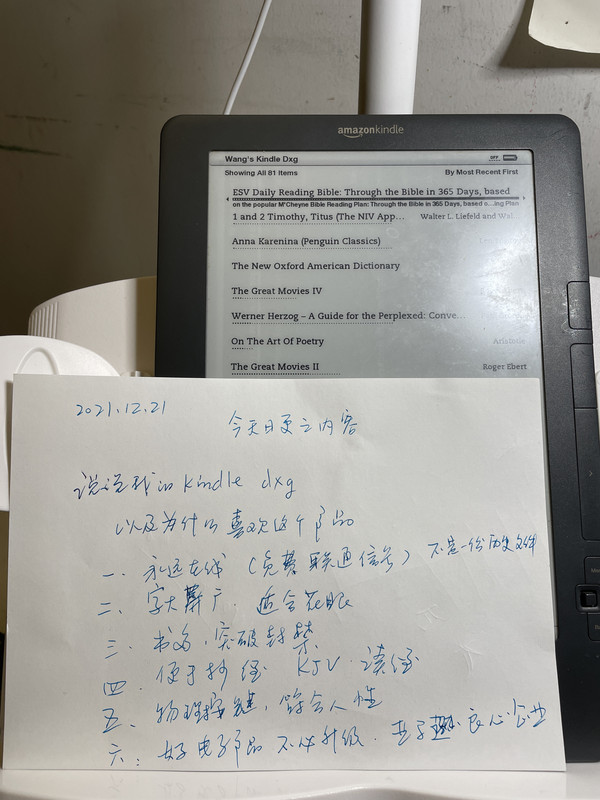 amazonkindle
Wang's Kindle Dxg
OFF
Showing All 81 Items By Most Recent First
ESV Daily Reading Bible: Through the Bible in 365 Days, based
on the popular M'Cheyne Bible Reading Plan: Through the Bible in 365 Days, based o...ing Plan
1 and 2 Timothy, Titus (The NIV App... Walter L. Liefeld and Wal
Anna Karenina (Penguin Classics)
The New Oxford American Dictionary
The Great Movies IV
Werner Herzog – A Guide for the Perplexed: Conve...
On The Art Of Poetry Aristotle
The Great Movies II Roger Ebert
2021.12.21
今天日更之内容
说说我的 kindle dxg
以及为什么喜欢这个产品
一、永远在线（免费联通信号）不是一份历史文件
二、字大屏广．适合花眼
三、书多．突破封禁．
四．便于抄经 KJV．读经
五、物理按键，符合人性
六：好电子产品 不必升级．良心企业
Menu